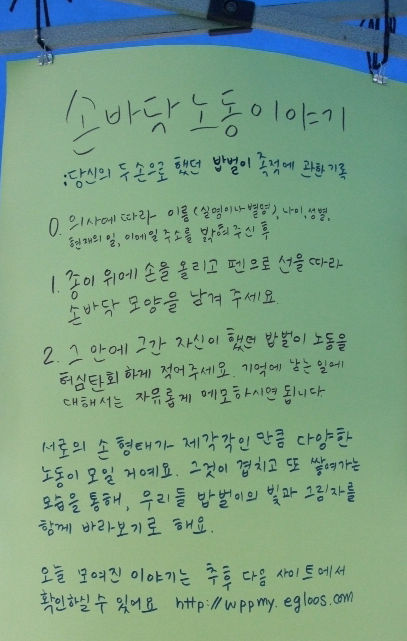 손바닥 노동이야기
:당신의 두손으로 했던 밥벌이 족적에 관한기록
0. 의사에따라 이름(실명이나 별명), 나이, 성별,
현재의 일, 이메일 주소를 밝혀주신 후
1. 종이 위에 손을 올리고 펜으로 선을 따라
손바닥 모양을 남겨 주세요.
2. 그 안에 그간 자신이 했던 밥벌이 노동을
허심탄회하게 적어주세요. 기억에 남는 일에
대해서는 자유롭게 메모하시면 됩니다
서로의 손 형태가 제각각인 만큼 다양한
노동이 모일 거예요. 그것이 겹치고 또 쌓여가는
모습을 통해, 우리들 밥벌이의 빛과 그림자를
함께 바라보기로 해요.
오늘 모여진 이야기는 추후 다음 사이트에서
확인하실 수 있어요 http://wppmy.egloos.com